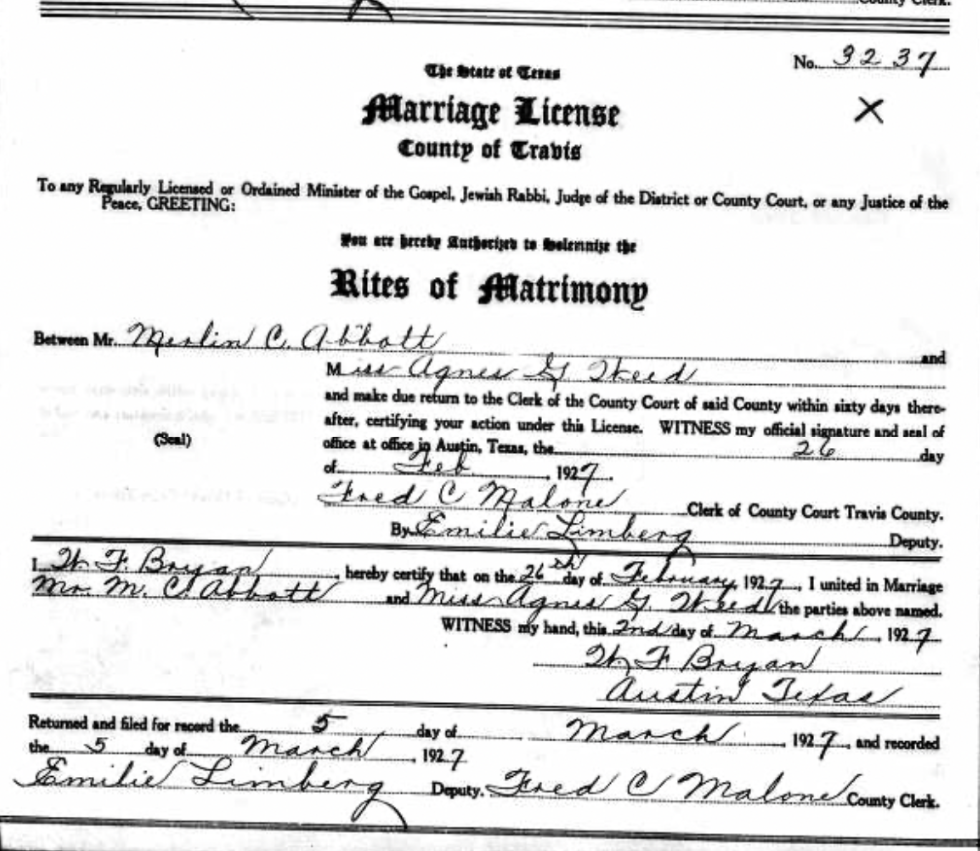 County Clerk.
No. 3237
The State of Texas
Marriage License
X
County of Travis
To any Regularly Licensed or Ordained Minister of the Gospel, Jewish Rabbi, Judge of the District or County Court, or any Justice of the
Peace, GREETING:
You are hereby Authorized to Solemnize the
Rites of Matrimony
Between Mr. Merlin C. Abbott and
Miss Agnes G. Weed
and make due return to the Clerk of the County Court of said County within sixty days there-
after, certifying your action under this License. WITNESS my official signature and seal of
(Seal)
office at office in Austin, Texas, the 26 day
of Feb, 1927.
Fred C Malone Clerk of County Court Travis County.
By Emilie Limberg Deputy.
I W. F. Bryan, hereby certify that on the 26th day of February, 1927, I united in Marriage
Mr. M. C. Abbott and Miss Agnes G. Weed the parties above named.
WITNESS my hand, this 2nd day of March, 1927
W. F. Bryan
Austin Texas
Returned and filed for record the 5 day of March, 1927, and recorded
the 5 day of March, 1927
Emilie Limberg Deputy. Fred C Malone County Clerk.